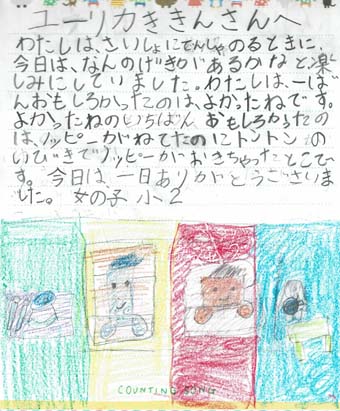 ユーリカききんさんへ
わたしは、さいしょにでんしゃのるときに、
今日は、なんのげきがあるかなと、楽
しみにしていました。わたしは、一ばん
おもしろかったのは、よかったねです。
よかったねのいちばん、おもしろかったの
は、ノッピーがねてたのにトントンの
いびきでノッピーがおきちゃったとこで
す。今日は、一日ありがとうございま
した。 女の子 小2
COUNTING SONG